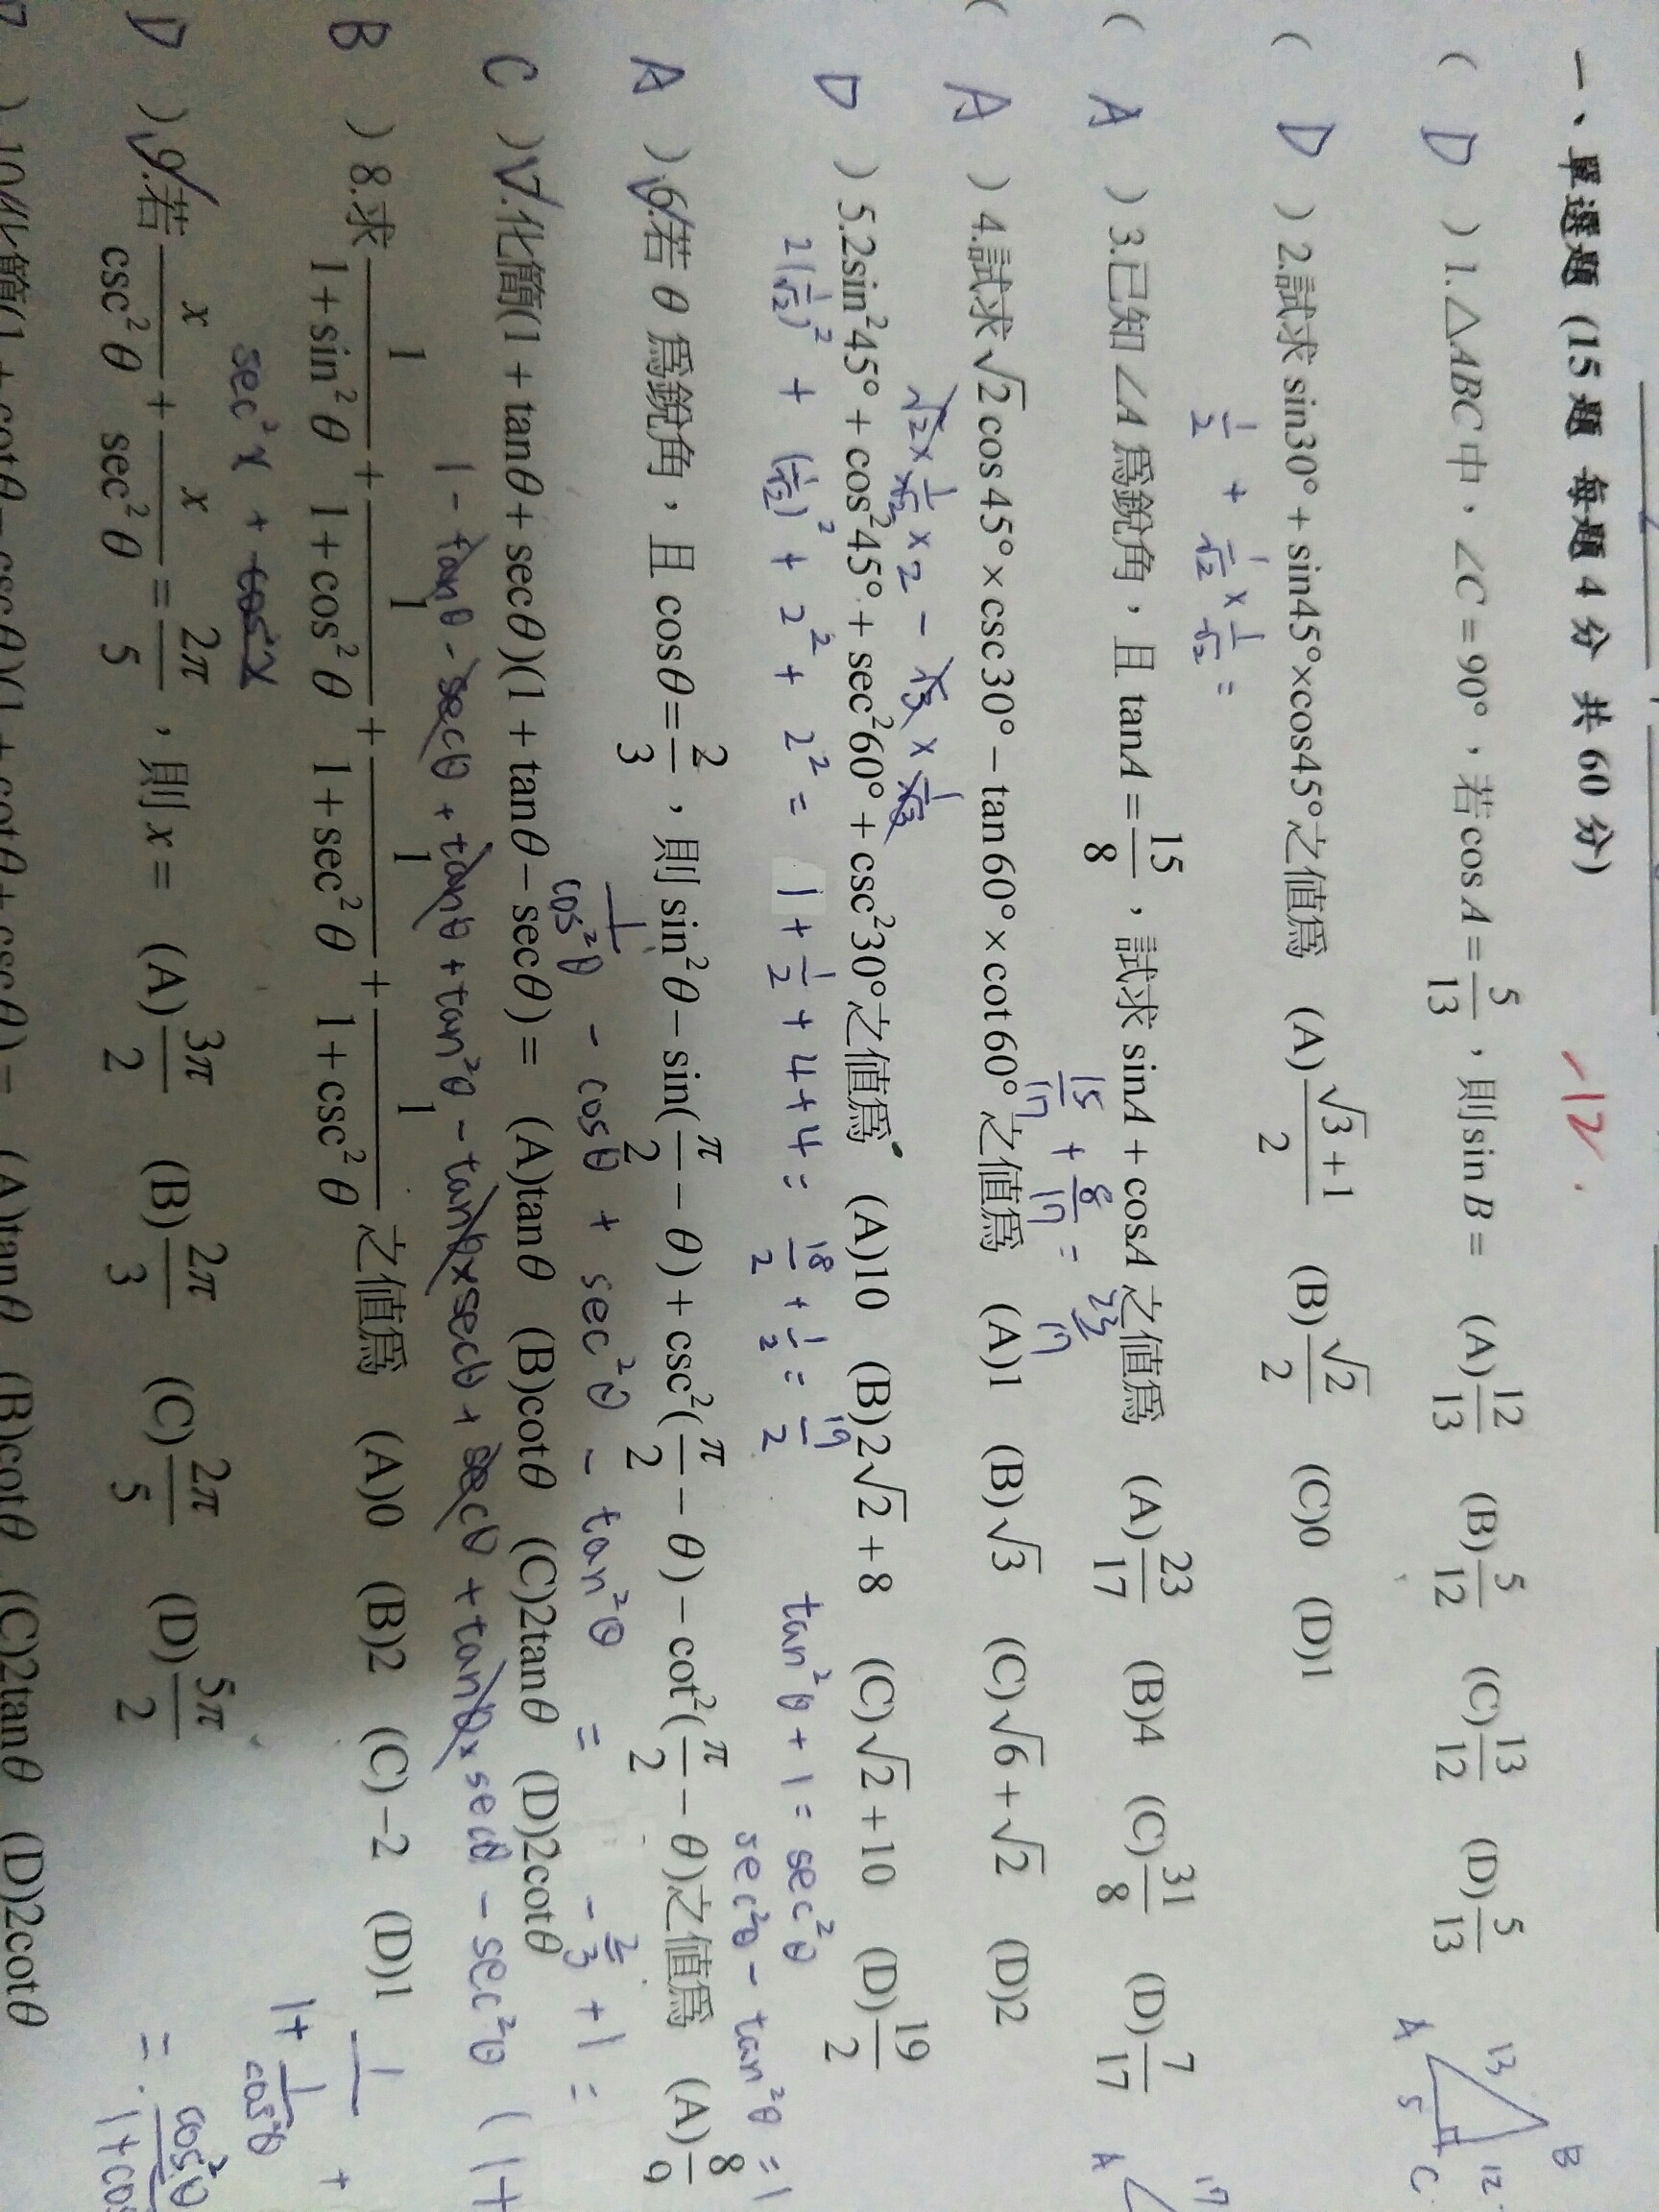 一、單選題 (15 題 每題 4 分 共 60 分) -12.
( D ) 1.△ABC 中，∠C = 90°，若 cos A = 5/13，則 sin B = (A) 12/13 (B) 5/12 (C) 13/12 (D) 5/13
A 13 5 B 12 C
( D ) 2.試求 sin30° + sin45°×cos45°之值爲 (A) (√3+1)/2 (B) √2/2 (C)0 (D)1
1/2 + 1/√2 × 1/√2 =
( A ) 3.已知 ∠A 爲銳角，且 tanA = 15/8，試求 sinA + cosA 之值爲 (A) 23/17 (B)4 (C) 31/8 (D) 7/17
15/17 + 8/17 = 23/17
A 17
( A ) 4.試求 √2 cos 45° × csc 30° − tan 60° × cot 60° 之值爲 (A)1 (B)√3 (C)√6 + √2 (D)2
√2 × 1/√2 × 2 − √3 × 1/√3
D ) 5.2sin²45° + cos²45° + sec²60° + csc²30°之值爲 (A)10 (B)2√2 + 8 (C)√2 + 10 (D) 19/2
2(1/√2)² + (1/√2)² + 2² + 2² = 1 + 1/2 + 4 + 4 = 18/2 + 1/2 = 19/2
tan²θ + 1 = sec²θ
sec²θ − tan²θ = 1
A ) 6.若 θ 爲銳角，且 cosθ = 2/3，則 sin²θ − sin(π/2 − θ) + csc²(π/2 − θ) − cot²(π/2 − θ)之值爲 (A) 8/9
1/cos²θ − cosθ + sec²θ − tan²θ = − 2/3 + 1 =
C ) 7.化簡(1 + tanθ + secθ)(1 + tanθ − secθ) = (A)tanθ (B)cotθ (C)2tanθ (D)2cotθ
1 − tanθ − secθ + tanθ + tan²θ − tanθ×secθ + secθ + tanθ×secθ − sec²θ (1+
B ) 8.求 1/(1+sin²θ) + 1/(1+cos²θ) + 1/(1+sec²θ) + 1/(1+csc²θ) 之值爲 (A)0 (B)2 (C)−2 (D)1
1/(1+ 1/cos²θ) +
sec²x + cos²x
D ) 9.若 x/csc²θ + x/sec²θ = 2π/5，則 x = (A) 3π/2 (B) 2π/3 (C) 2π/5 (D) 5π/2
= cos²θ/1+cos
) 10.化簡(1 + cotθ − cscθ)(1 + cotθ + cscθ) = (A)tanθ (B)cotθ (C)2tanθ (D)2cotθ